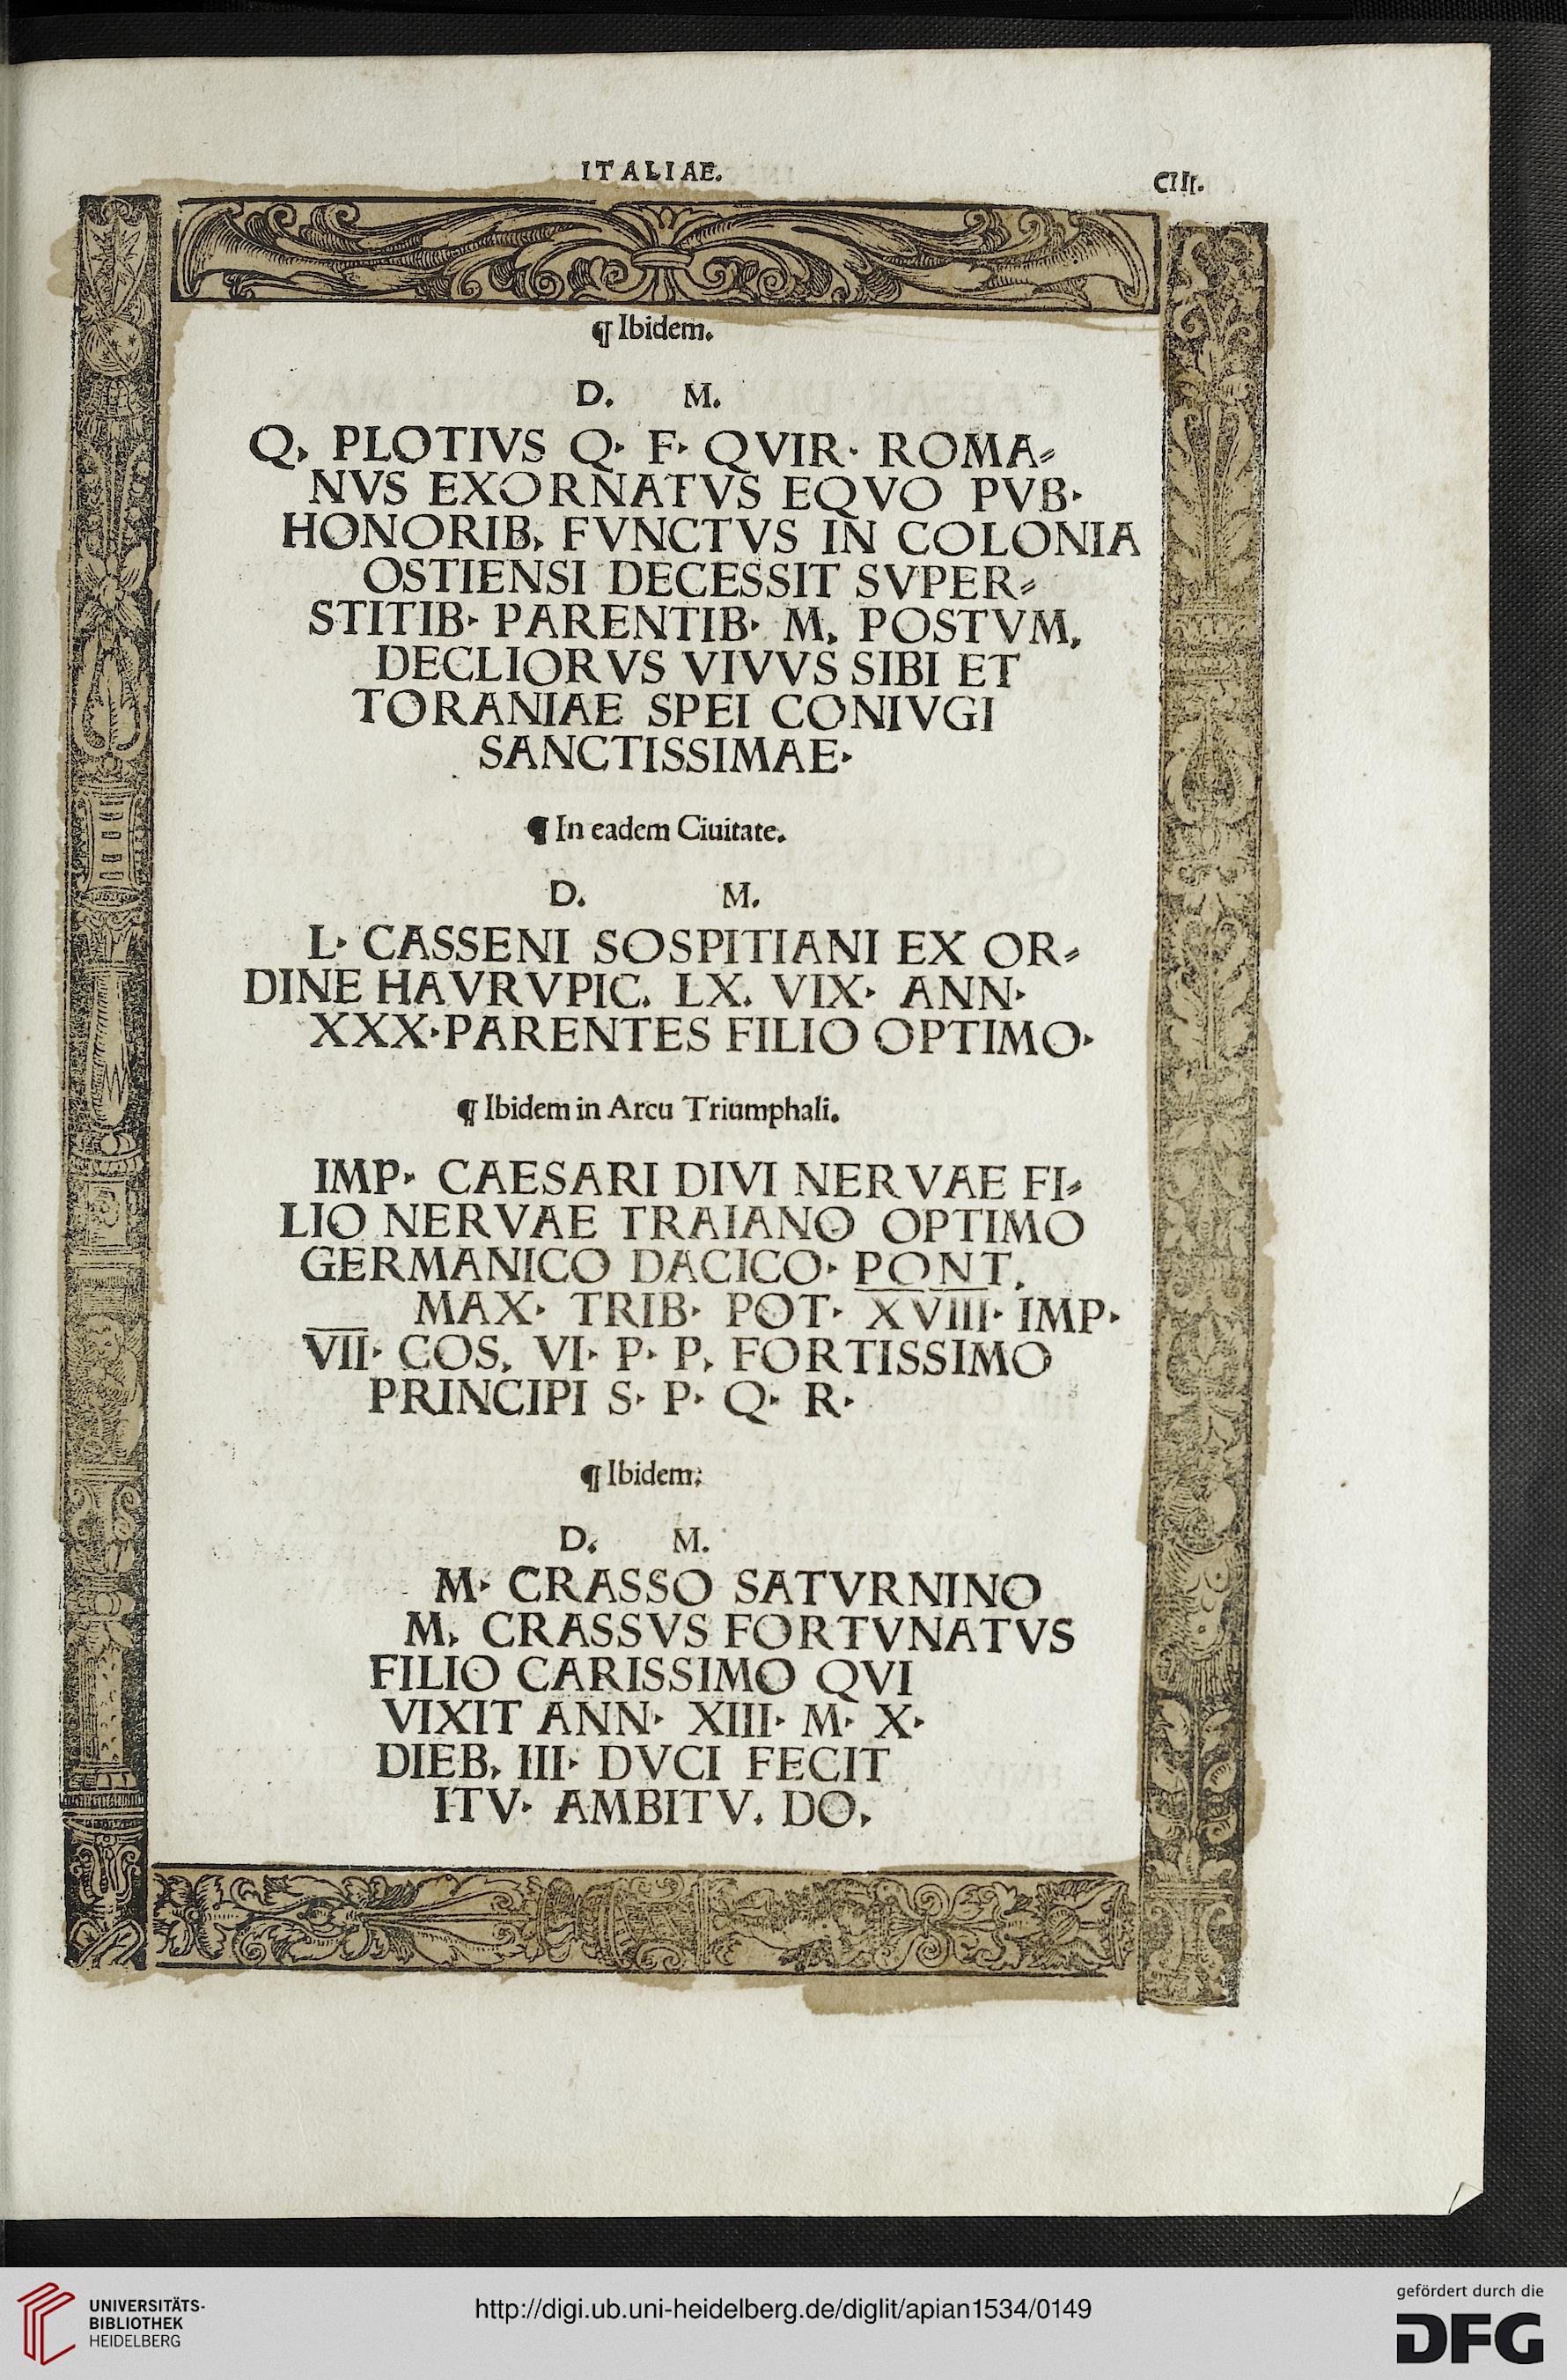 ITALIAE.
CIII.
¶ Ibidem.
D. M.
Q. PLOTIVS Q. F. QVIR. ROMA⸗
NVS EXORNATVS EQVO PVB.
HONORIB. FVNCTVS IN COLONIA
OSTIENSI DECESSIT SVPER⸗
STITIB. PARENTIB. M. POSTVM.
DECLIORVS VIVVS SIBI ET
TORANIAE SPEI CONIVGI
SANCTISSIMAE.
¶ In eadem Ciuitate.
D. M.
L. CASSENI SOSPITIANI EX OR⸗
DINE HAVRVPIC. LX. VIX. ANN.
XXX. PARENTES FILIO OPTIMO.
¶ Ibidem in Arcu Triumphali.
IMP. CAESARI DIVI NERVAE FI⸗
LIO NERVAE TRAIANO OPTIMO
GERMANICO DACICO. PONT.
MAX. TRIB. POT. XVIIII. IMP.
VII. COS. VI. P. P. FORTISSIMO
PRINCIPI S. P. Q. R.
¶ Ibidem:
D. M.
M. CRASSO SATVRNINO
M. CRASSVS FORTVNATVS
FILIO CARISSIMO QVI
VIXIT ANN. XIII. M. X.
DIEB. III. DVCI FECIT
ITV. AMBITV. DO.
UNIVERSITÄTS-
BIBLIOTHEK
HEIDELBERG
http://digi.ub.uni-heidelberg.de/diglit/apian1534/0149
gefördert durch die
DFG